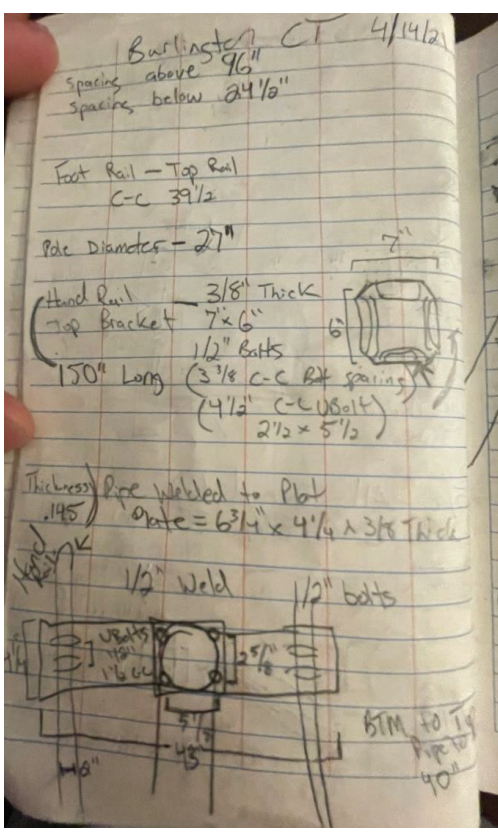 Burlington CT 4/14/21
spacing above 96"
spacing below 24 1/2"
Foot Rail - Top Rail
C-C 39 1/2
Pole Diameter - 27"
7"
Hand Rail - 3/8" Thick
Top Bracket 7"x6"
6"
1/2" Bolts
150" Long (3 3/8 C-C Bolt spacing)
(4 1/2" C-C UBolt)
2 1/2 x 5 1/2
Thickness) Pipe Welded to Plat
.145 Plate = 6 3/4" x 4 1/4 x 3/8 Thick
Hand
Rail
1/2" Weld 1/2" bolts
UBolts
1/2"
C-C
2 5/8"
5"
BTM to Top
Pipe to
40"